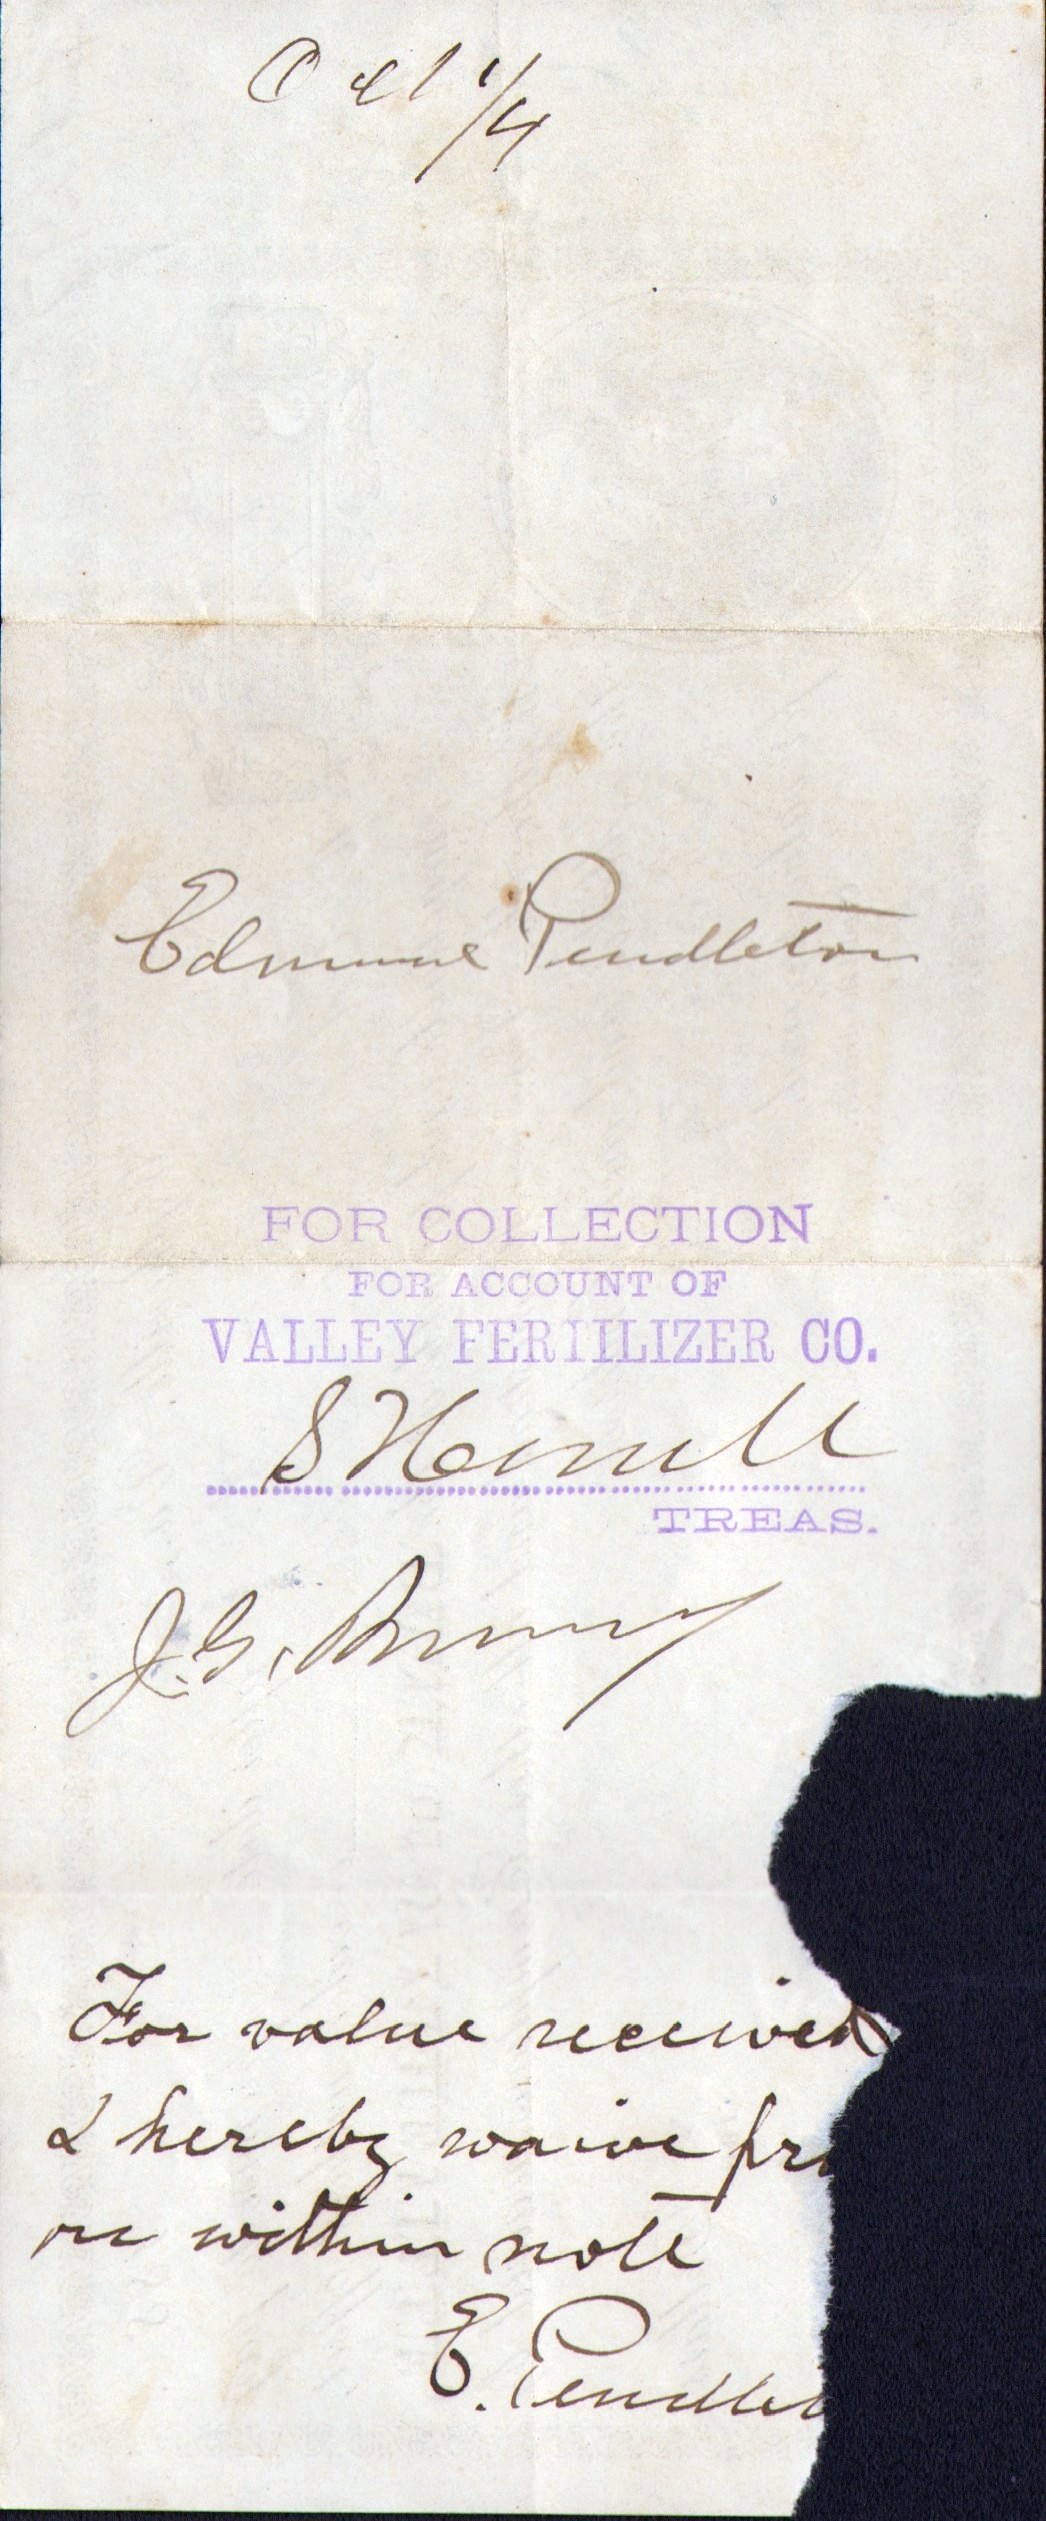 Oct 1/4
Edmund Pendleton
FOR COLLECTION
FOR ACCOUNT OF
VALLEY FERTILIZER CO.
S
TREAS.
J. G.
For value received
I hereby waive pro
on within note
E. Pendlet